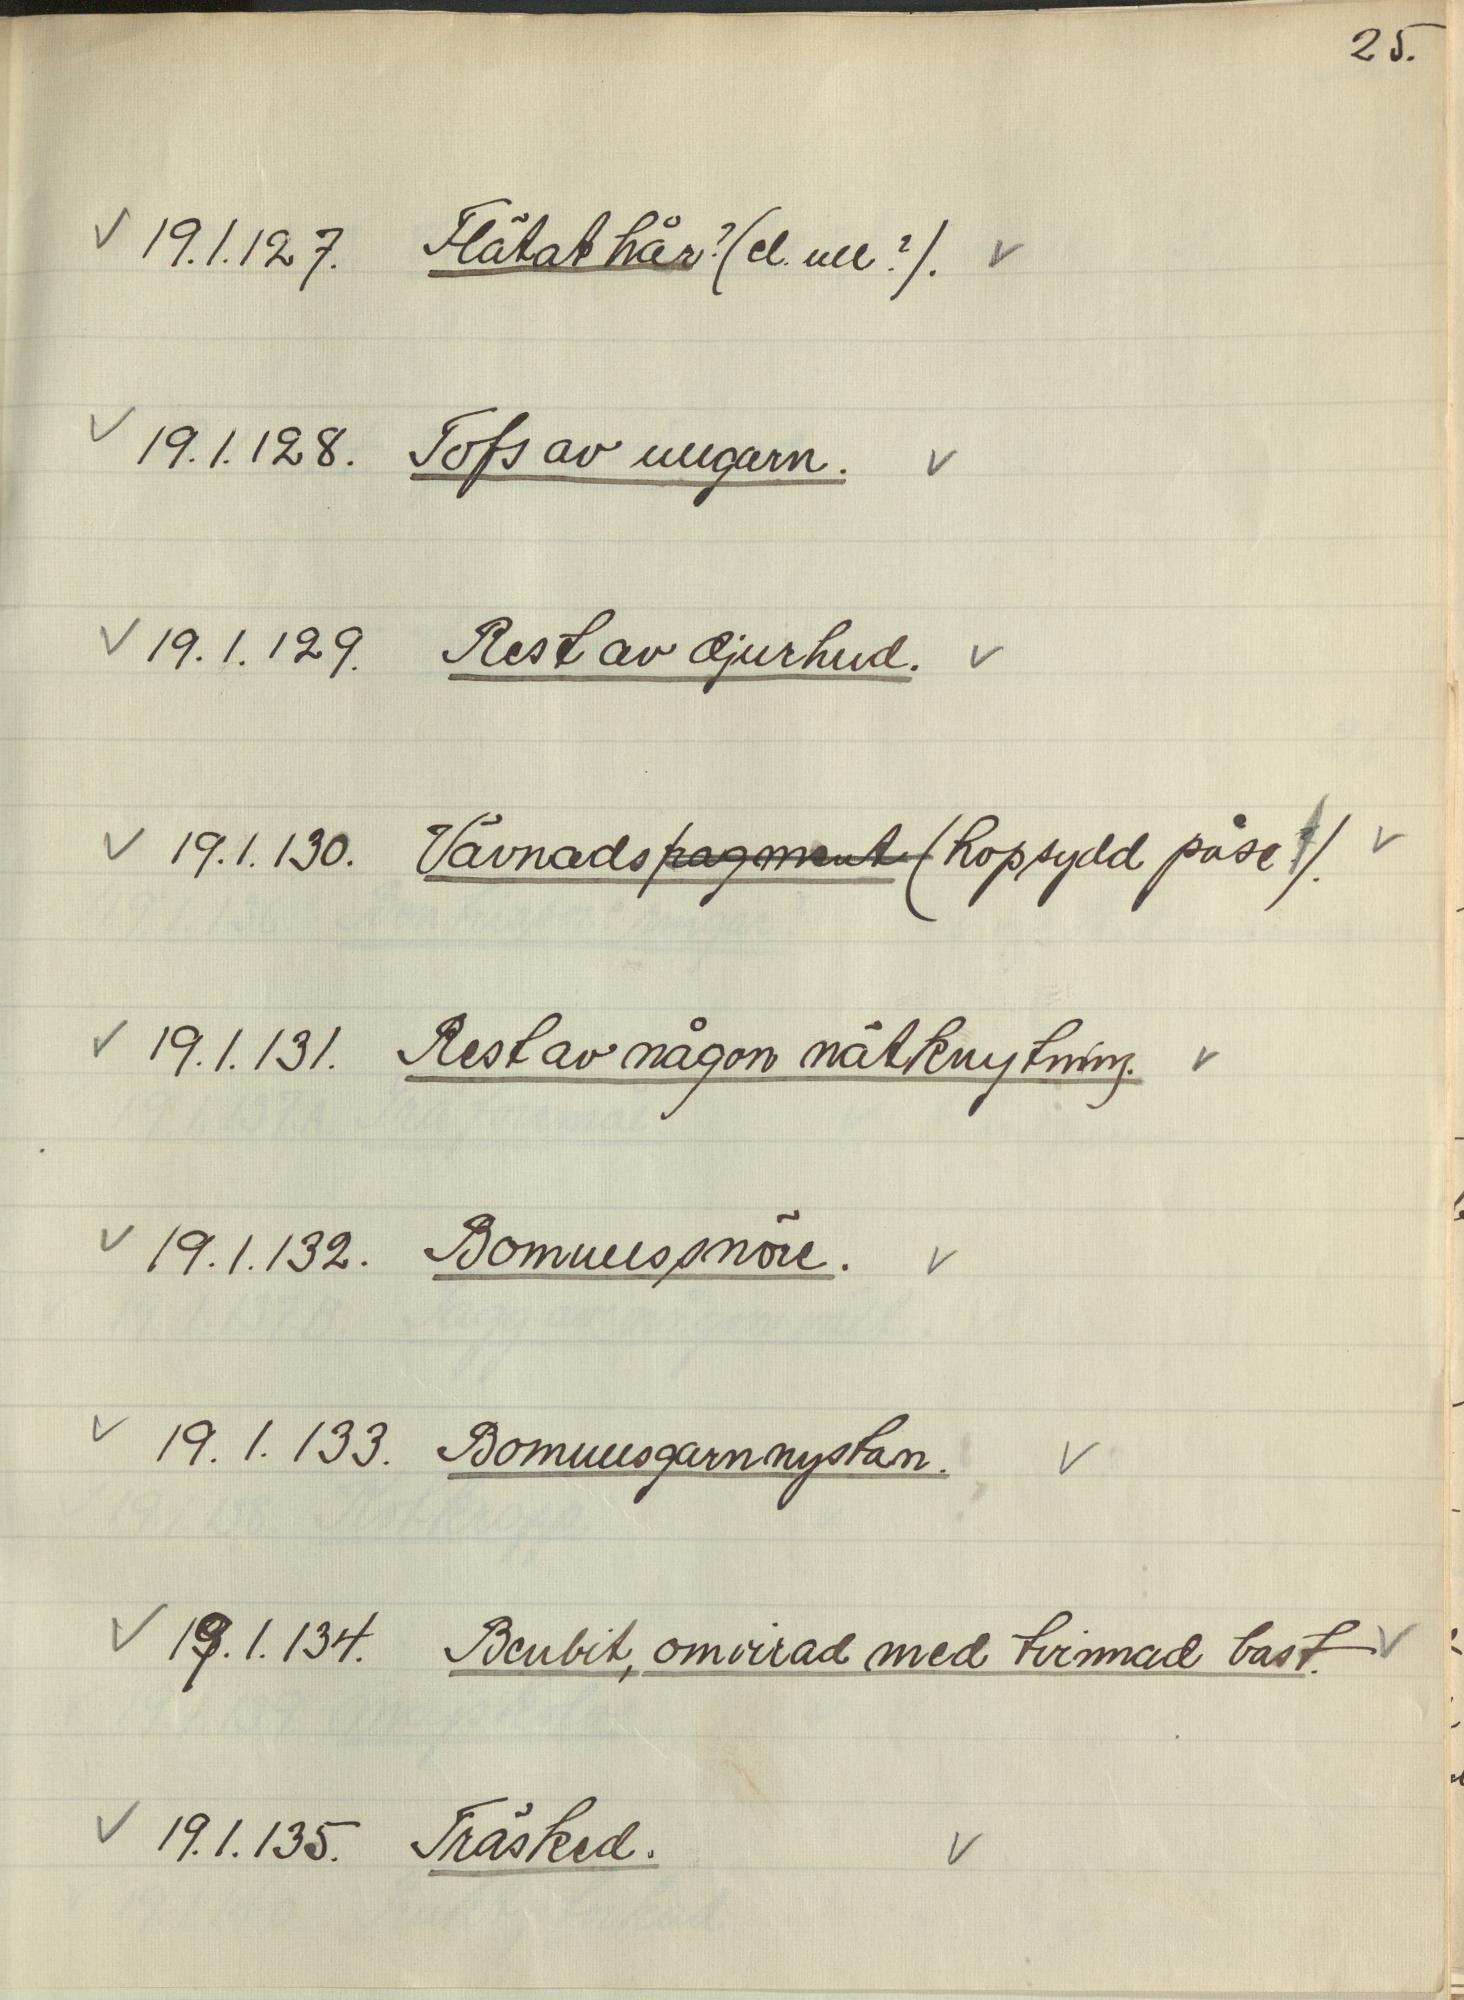 25.
✓ 19.1.127. Flätat hår? (el. ull?). ✓
✓ 19.1.128. Tofs av ullgarn. ✓
✓ 19.1.129. Rest av djurhud. ✓
✓ 19.1.130. Vävnadsfragment (hopsydd påse?). ✓
✓ 19.1.131. Rest av någon nätknytning. ✓
✓ 19.1.132. Bomullssnöre. ✓
✓ 19.1.133. Bomullsgarnnystan. ✓
✓ 19.1.134. Benbit, omvirad med tvinnad bast. ✓
✓ 19.1.135. Träsked. ✓